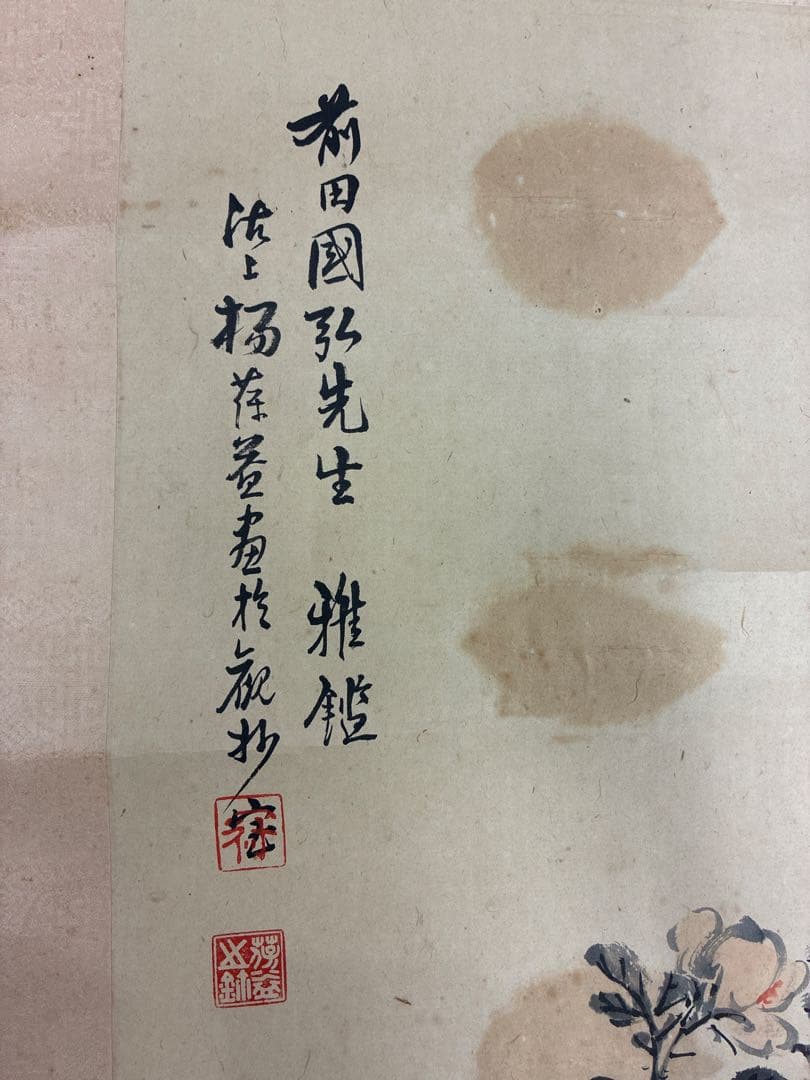 前田國弘先生 雅鑑
沽上楊葆益畫於觀妙室
葆益之鉥